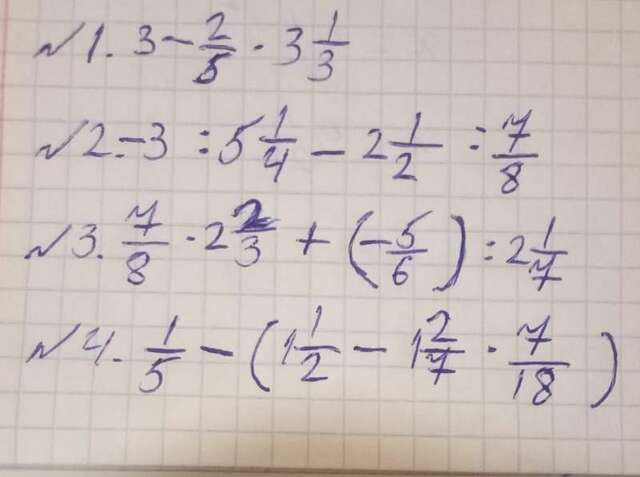 №1. 3 - 2/5 · 3 1/3
№2. -3 : 5 1/4 - 2 1/2 : 7/8
№3. 7/8 · 2 2/3 + (-5/6) : 2 1/7
№4. 1/5 - (1 1/2 - 1 2/7 · 7/18)